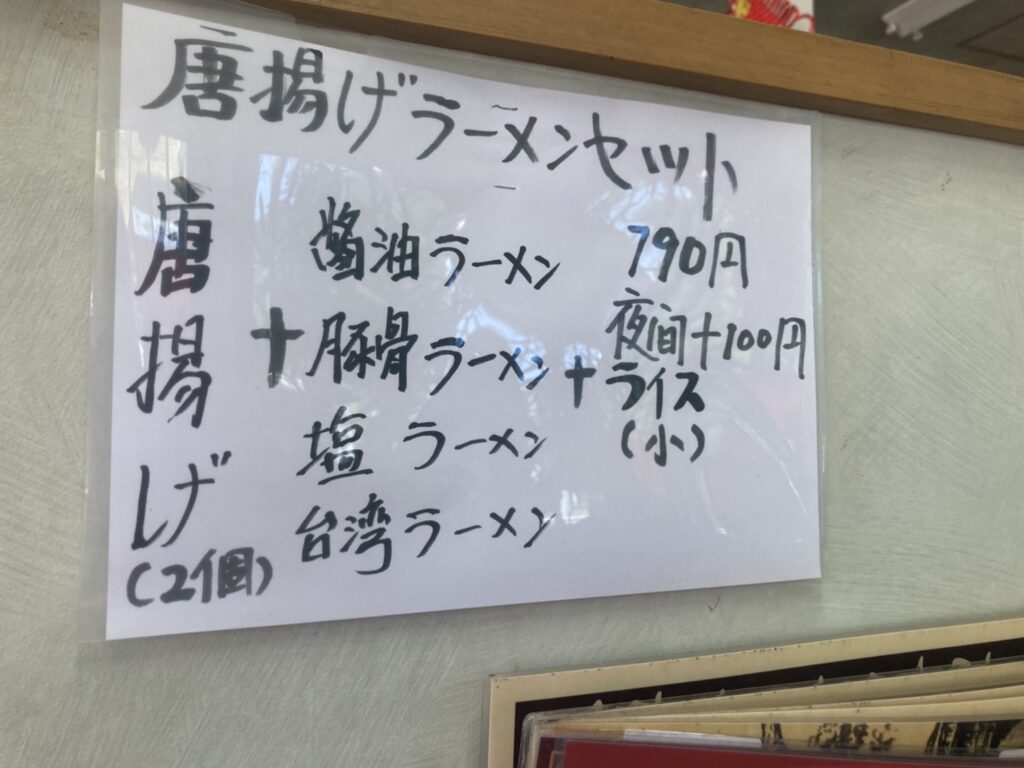 唐揚げラーメンセット
唐揚げ
(2個)
+
醤油ラーメン
豚骨ラーメン
塩 ラーメン
台湾ラーメン
+
790円
夜间+100円
ライス
(小)